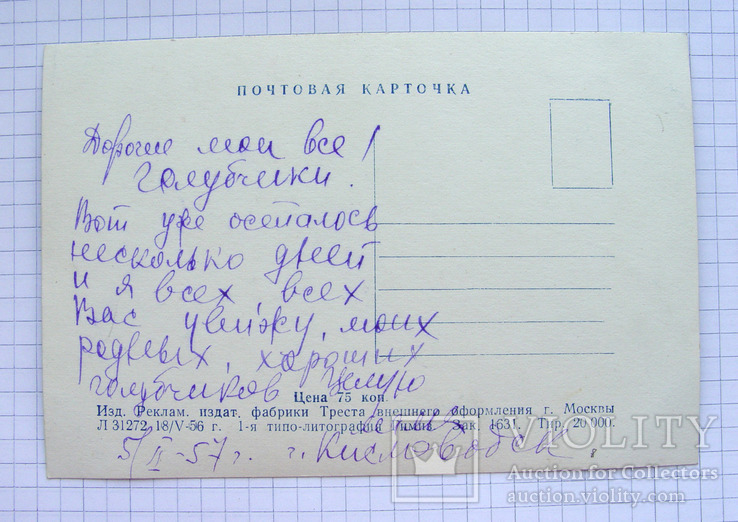 ПОЧТОВАЯ КАРТОЧКА
Дорогие мои все!
Голубчики.
Вот уже осталось
несколько дней
и я всех, всех
Вас увижу, моих
родных, хороших
голубчиков Целую
Цена 75 коп.
Изд. Реклам. издат. фабрики Треста внешнего оформления г. Москвы
Л 31272 18/V-56 г. 1-я типо-литография Зак. 1631. Тир. 20 000.
5/II-57 г. г. Кисловодск
VIOLITY
Auction for Collectors
auction.violity.com